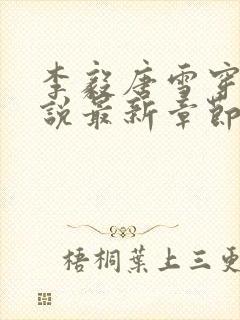 李毅唐雪穿
说最新章节
梧桐葉上三更